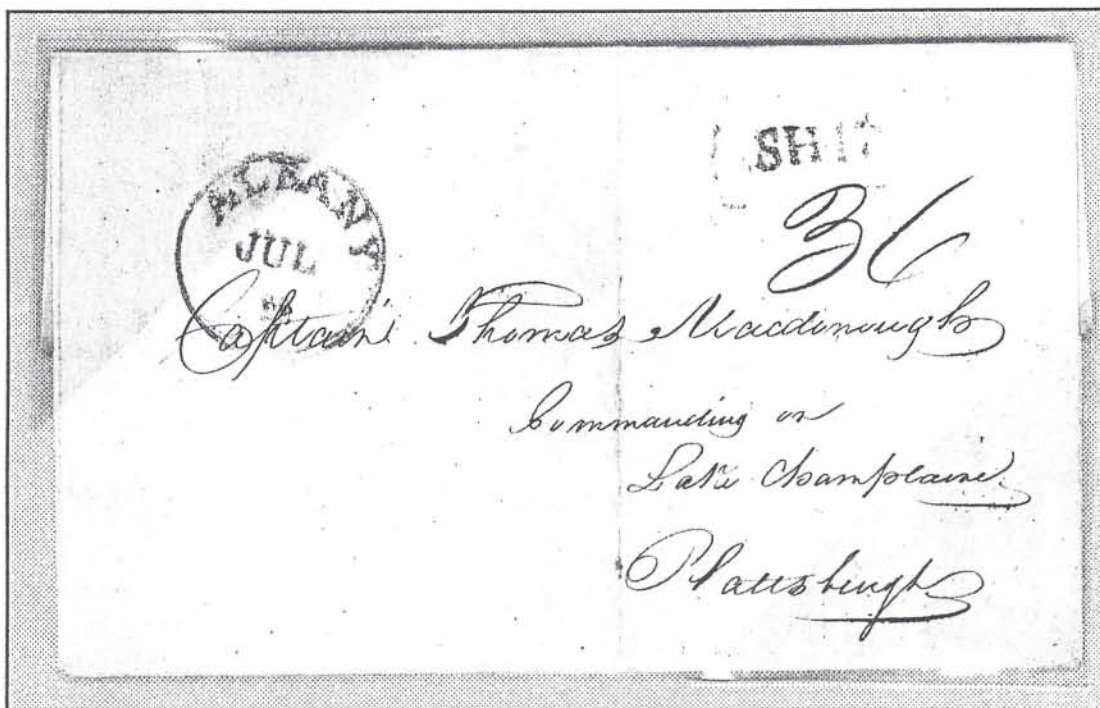 ALBANY
JUL
SHIP
36
Captain Thomas Macdonough
Commanding on
Lake Champlaine
Plattsburgh